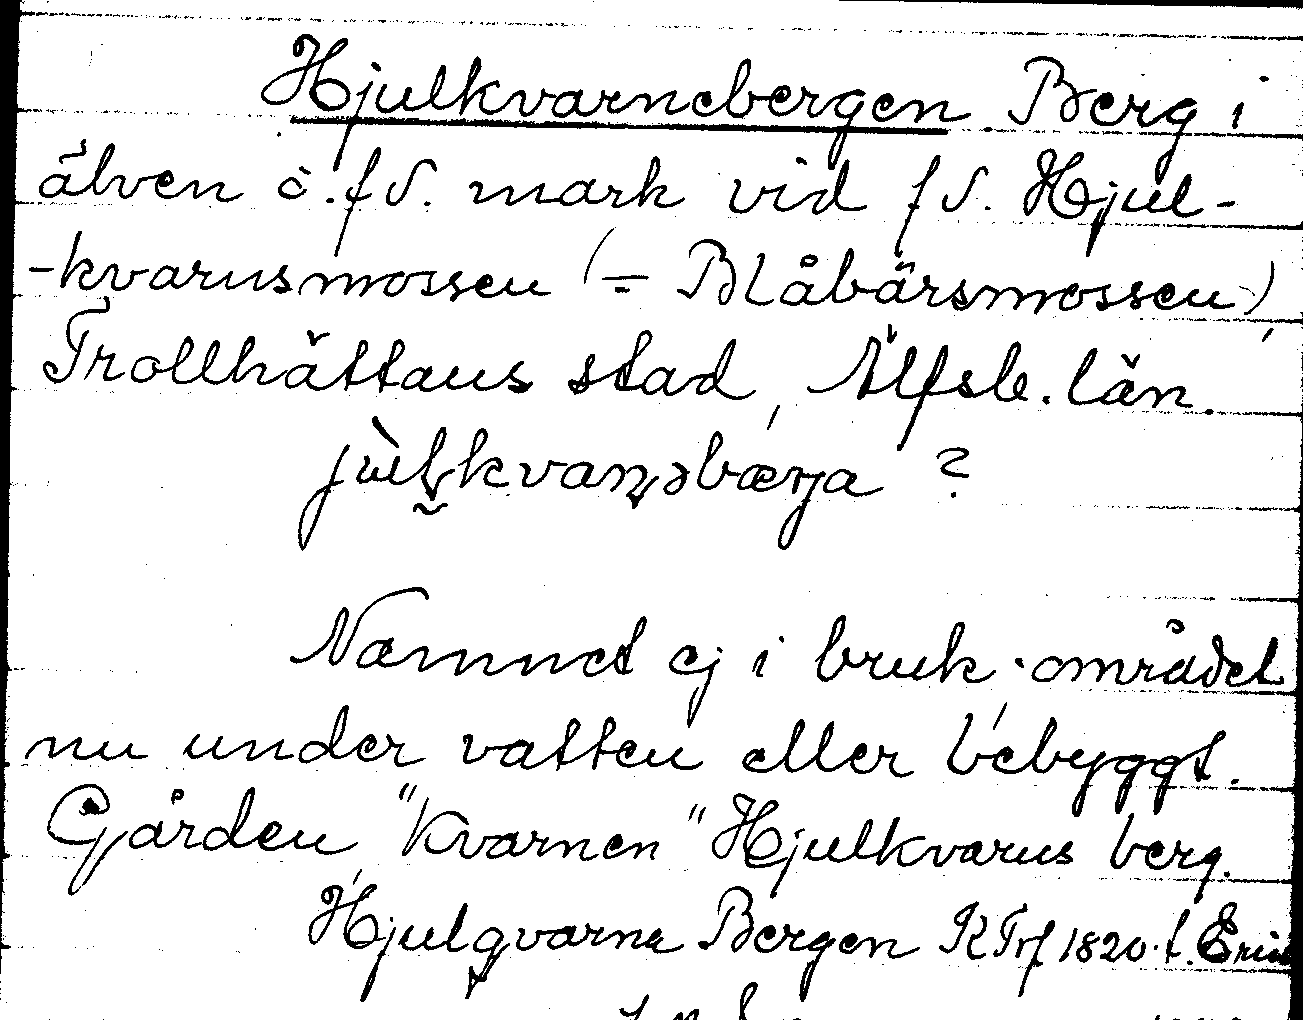 Hjulkvarnebergen Berg i
älven ö. f d. mark vid f d. Hjul-
-kvarnsmossen (= Blåbärsmossen),
Trollhättans stad, Älfsb. län.
?
Namnet ej i bruk, området
nu under vatten eller bebyggt.
Gården "Kvarnen" Hjulkvarns berg.
Hjulqvarna Bergen K Trf 1820